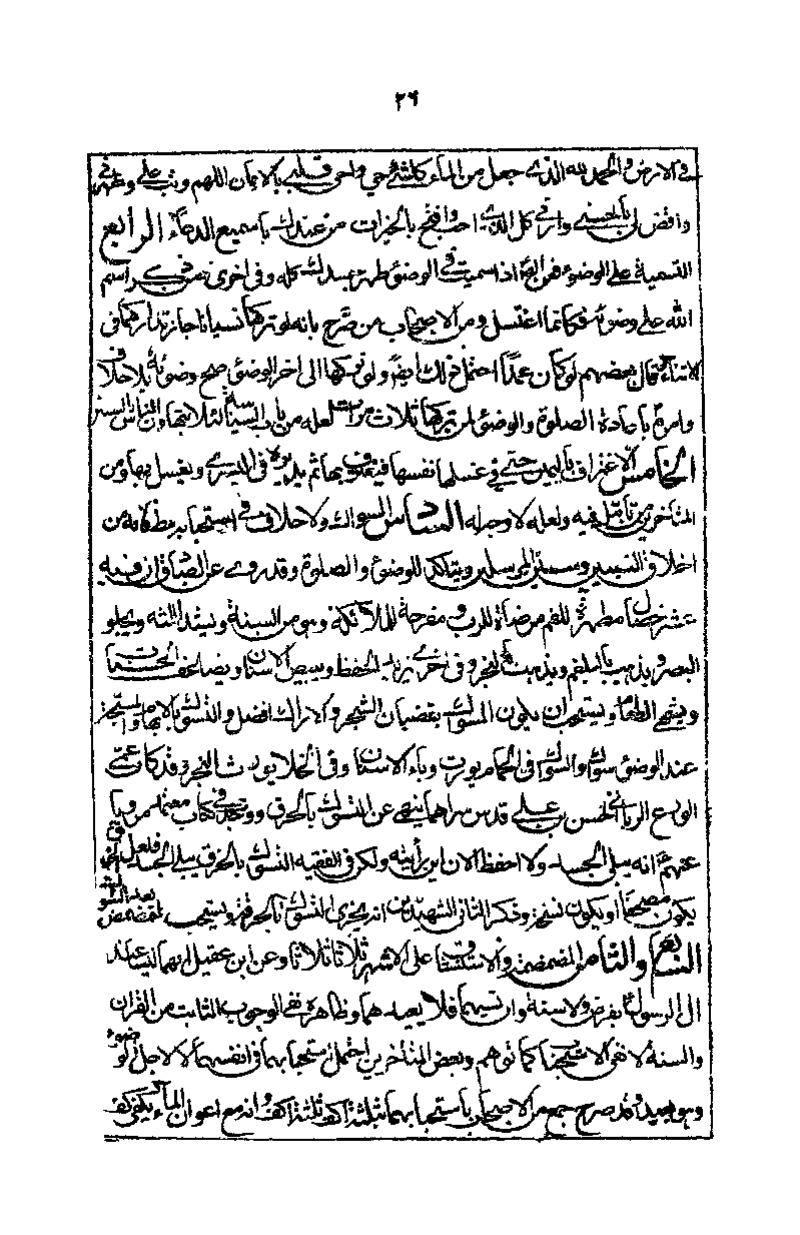 ٢٦
في الارض والحمد لله الذي جعل من الماء كلشئ حي واحي قلبي بالايمان اللهم وتب علي وطهرني
واقض لي بالحسنى وارني كل الذي احب وافتح بالخيرات من عندك يا سميع الدعاء الرابع
التسمية على الوضوء فمن اذا سميت في الوضوء طهر جسدك كله وفي اخرى من ذكر اسم
الله على وضوئه فكانما اغتسل ومن الاصحاب من صرّح بانه لو تركها نسيانا جاز تداركها في
الاثناء فقال بعضهم لو كان عمدًا احتمل ذلك ايضا ولو تركها الى اخر الوضوء صح وضوئه بلا خلاف
وامره باعادة الصلوة والوضوء لمن تركها ثلاث مرات لعله من باب لئلا يتهاون الناس
الخامس الاغتراف باليمين حتى في غسلها نفسها فيغترف بها ثم يديره في اليسرى ويغسل بها ومن
المتاخرين من تأمل فيه ولعله لا وجه له السادس السواك ولا خلاف في استحبابه مطلقا لانه من
اخلاق النبيين وسنن المرسلين ويتاكد للوضوء والصلوة وقد روى عن الصادق ان فيه
عشر خصال مطهرة للفم مرضاة للرب ومفرحة للملائكة وهو من السنة ويشد اللثة ويجلو
البصر ويذهب بالبلغم ويذهب بالحفر وفي اخرى يزيد الحفظ ويبيض الاسنان ويضاعف الحسنات
ويشهى الطعام ويستحب ان يكون المسواك بقضبان الشجر والاراك افضل والتسوك بالابهام والمسبحة
عند الوضوء سواك والسواك في الحمام يورث وباء الاسنان وفي الخلا يورث البخر وقد كان عمي
الورع الرباني الحسن بن علي قدس سراهما ينهى عن التسوك بالخرق ووجد في كتاب معتمد مرويا
عنهم انه يبلي الجسد ولا احفظ الان اين رأيته ولكن في الفقيه التسوك بالخزف يبلي الجسد فلعل
يكون مصحفا او يكون نسخ وذكر الثاني الشهيدين انه يجزي التسوك بالخرقة ويستحب التمضمض بعد السواك
السابع والثامن المضمضة والاستنشاق على الاشهر ثلاثا ثلاثا وعن ابن عقيل انهما ليسا عند
ال الرسول بفرض ولا سنة وان نسيهما فلا يعيدهما وظاهره نفي الوجوب الثابت من القران
والسنة لا نفي الاستحباب كما توهم وبعض المتاخرين احتمل استحبابهما في انفسهما لا لاجل الوضوء
وهو بعيد وقد صرح جمع من الاصحاب باستحبابهما بثلثة اكف وثلثة اكف وانه مع اعواز الماء يكفي كف